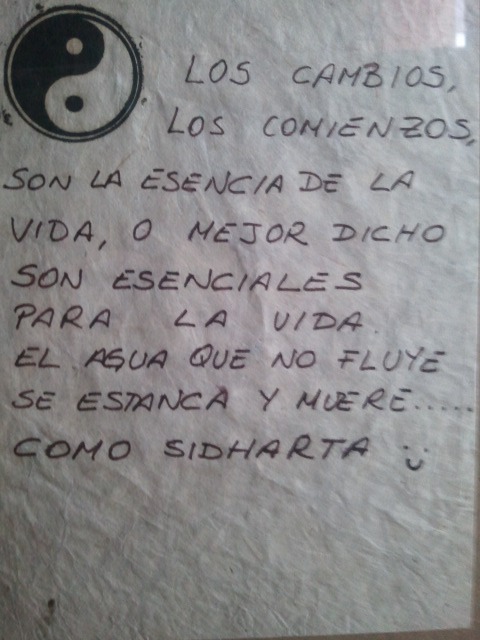 LOS CAMBIOS,
LOS COMIENZOS,
SON LA ESENCIA DE LA
VIDA, O MEJOR DICHO
SON ESENCIALES
PARA LA VIDA.
EL AGUA QUE NO FLUYE
SE ESTANCA Y MUERE.....
COMO SIDHARTA :)